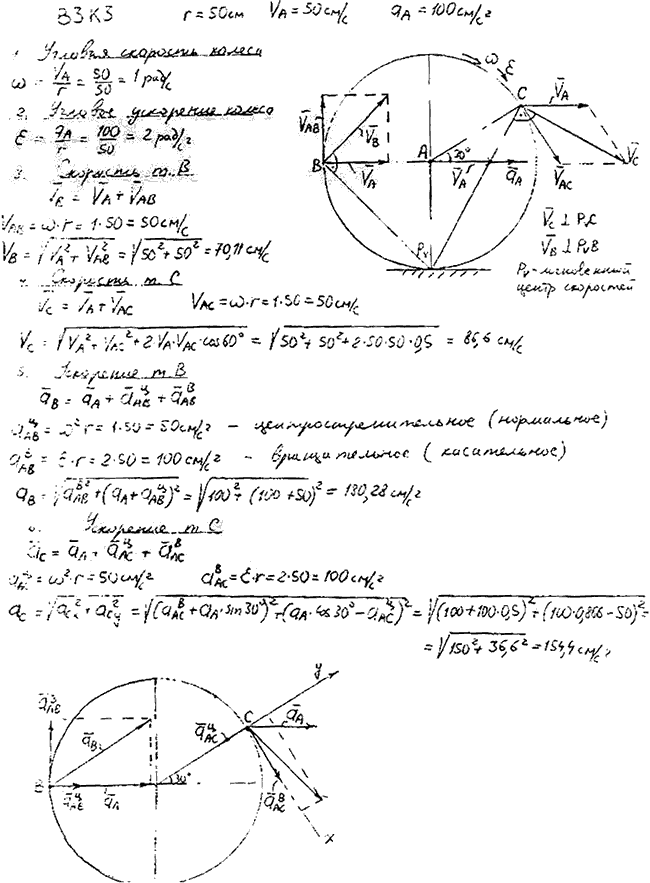 ВЗ КЗ r = 50 см V̄A = 50 см/с aA = 100 см/с²
1. Угловая скорость колеса
ω = VA/r = 50/50 = 1 рад/с
2. Угловое ускорение колеса
ε = aA/r = 100/50 = 2 рад/с²
3. Скорость т. В
V̄B = V̄A + V̄AB
VAB = ω·r = 1·50 = 50 см/с
VB = √VA² + VAB² = √50² + 50² = 70,11 см/с
Скорость т. С
V̄C = V̄A + V̄AC VAC = ω·r = 1·50 = 50 см/с
VC = √VA² + VAC² + 2·VA·VAC·cos60° = √50² + 50² + 2·50·50·0,5 = 86,6 см/с
5. Ускорение т. В
āB = āA + āᴴАВ + āᴮAB
ω²·r = 1·50 = 50 см/с² – центростремительное (нормальное)
ε·r = 2·50 = 100 см/с² – вращательное (касательное)
aB = √aᴮAB² + (aA + aᶣAB)² = √100² + (100 + 50)² = 180,28 см/с²
Ускорение т. С
āC = āA + āᶣAC + āᴮAC
= ω²·r = 50 см/с² aᴮAC = ε·r = 2·50 = 100 см/с²
aC = √aCx² + aCy² = √(aᴮAC + aA·sin30°)² + (aA·cos30° – aᶣAC)² = √(100 + 100·0,5)² + (100·0,866 – 50)² =
= √150² + 36,6² = 154,4 см/с²
ω ε
C V̄A
V̄AB V̄B
B V̄A A 30° V̄A āA V̄AC V̄C
Pv
V̄C ⊥ PvC
V̄B ⊥ PvB
Pv - мгновенный
центр скоростей
y
C āA
āᴮAB āB āᶣAC
B āᶣAB āA 30° āᴮAC
x